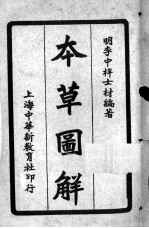 明李中梓士材編著
本草圖解
上海中華新教育社印行